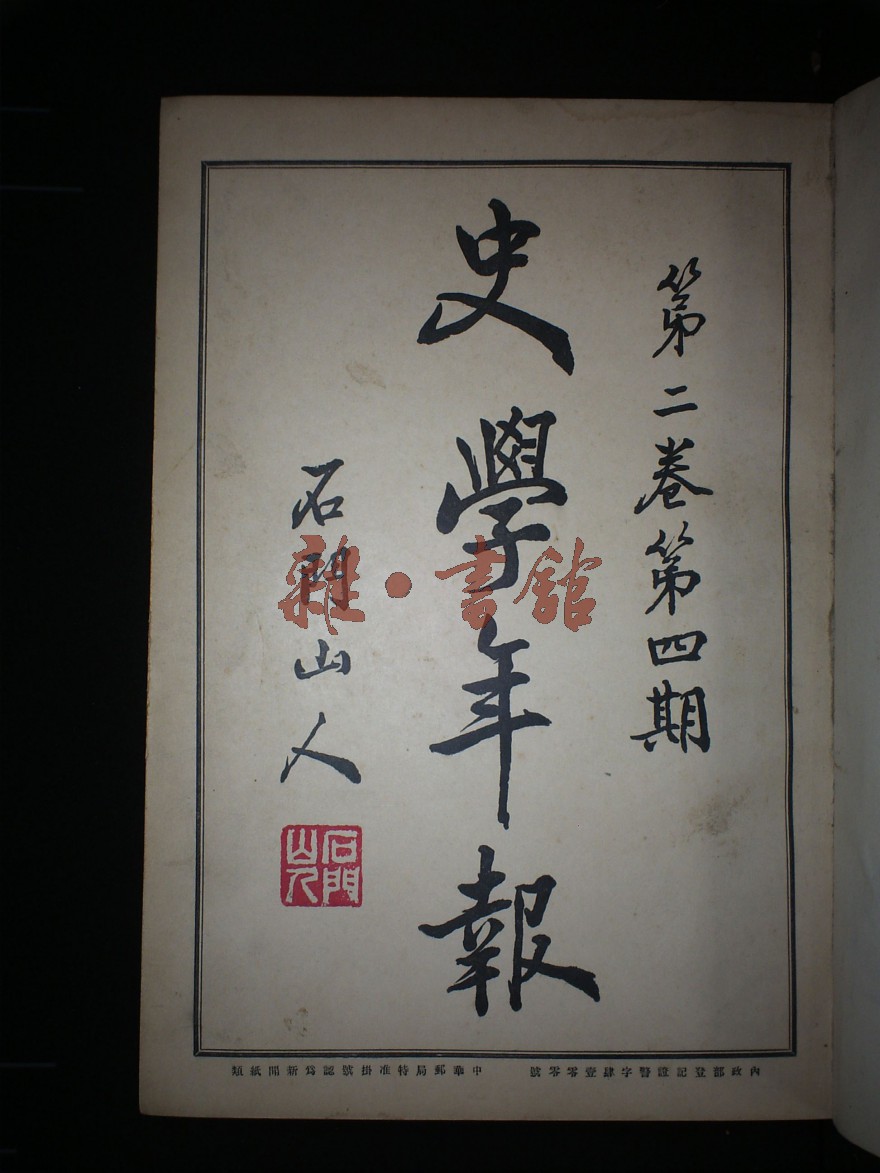 第二卷第四期
史學年報
石門山人
石門山人
內政部登記證警字肆壹零零號
中華郵局特准掛號認爲新聞紙類
雜·書館